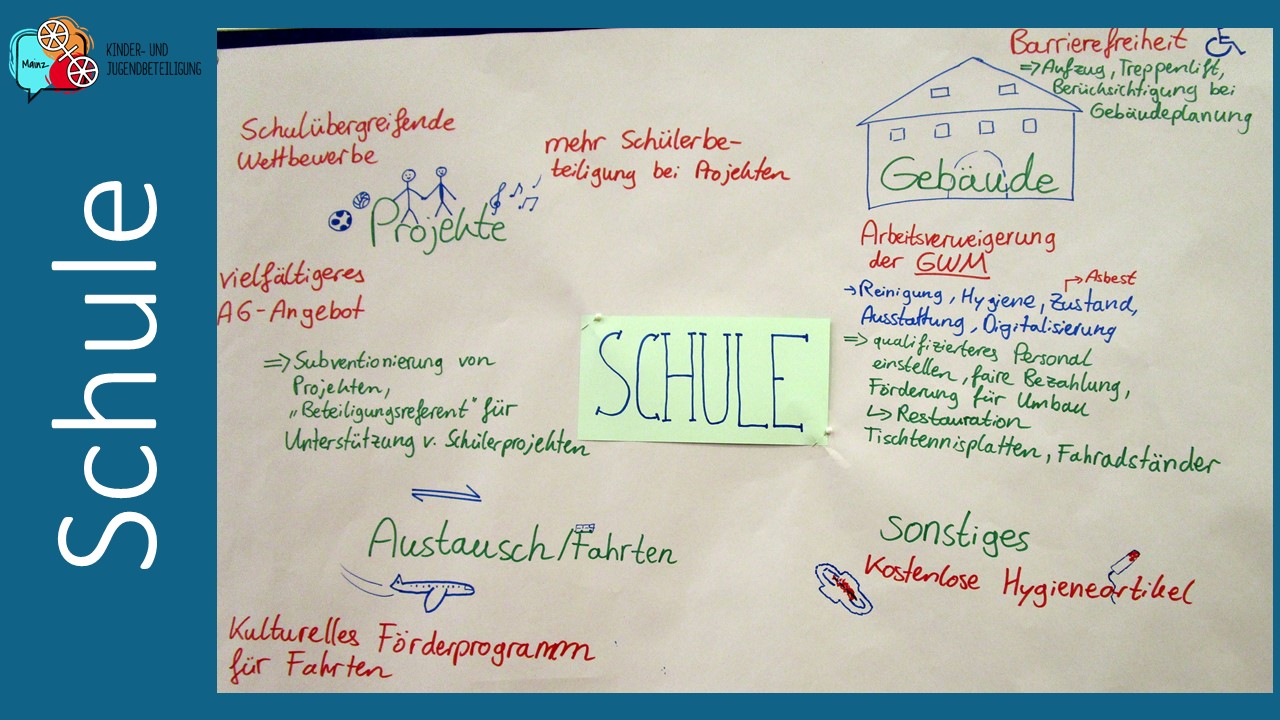 Mainz
KINDER- UND
JUGENDBETEILIGUNG
Schule
Schulübergreifende
Wettbewerbe
mehr Schülerbe-
teiligung bei Projekten
Projekte
vielfältigeres
AG-Angebot
=> Subventionierung von
Projekten,
„Beteiligungsreferent" für
Unterstützung v. Schülerprojekten
SCHULE
Barrierefreiheit
=> Aufzug, Treppenlift,
Berücksichtigung bei
Gebäudeplanung
Gebäude
Arbeitsverweigerung
der GWM
Asbest
→ Reinigung, Hygiene, Zustand,
Ausstattung, Digitalisierung
=> qualifizierteres Personal
einstellen, faire Bezahlung,
Förderung für Umbau
↳ Restauration
Tischtennisplatten, Fahradständer
Austausch/Fahrten
Kulturelles Förderprogramm
für Fahrten
Sonstiges
Kostenlose Hygieneartikel